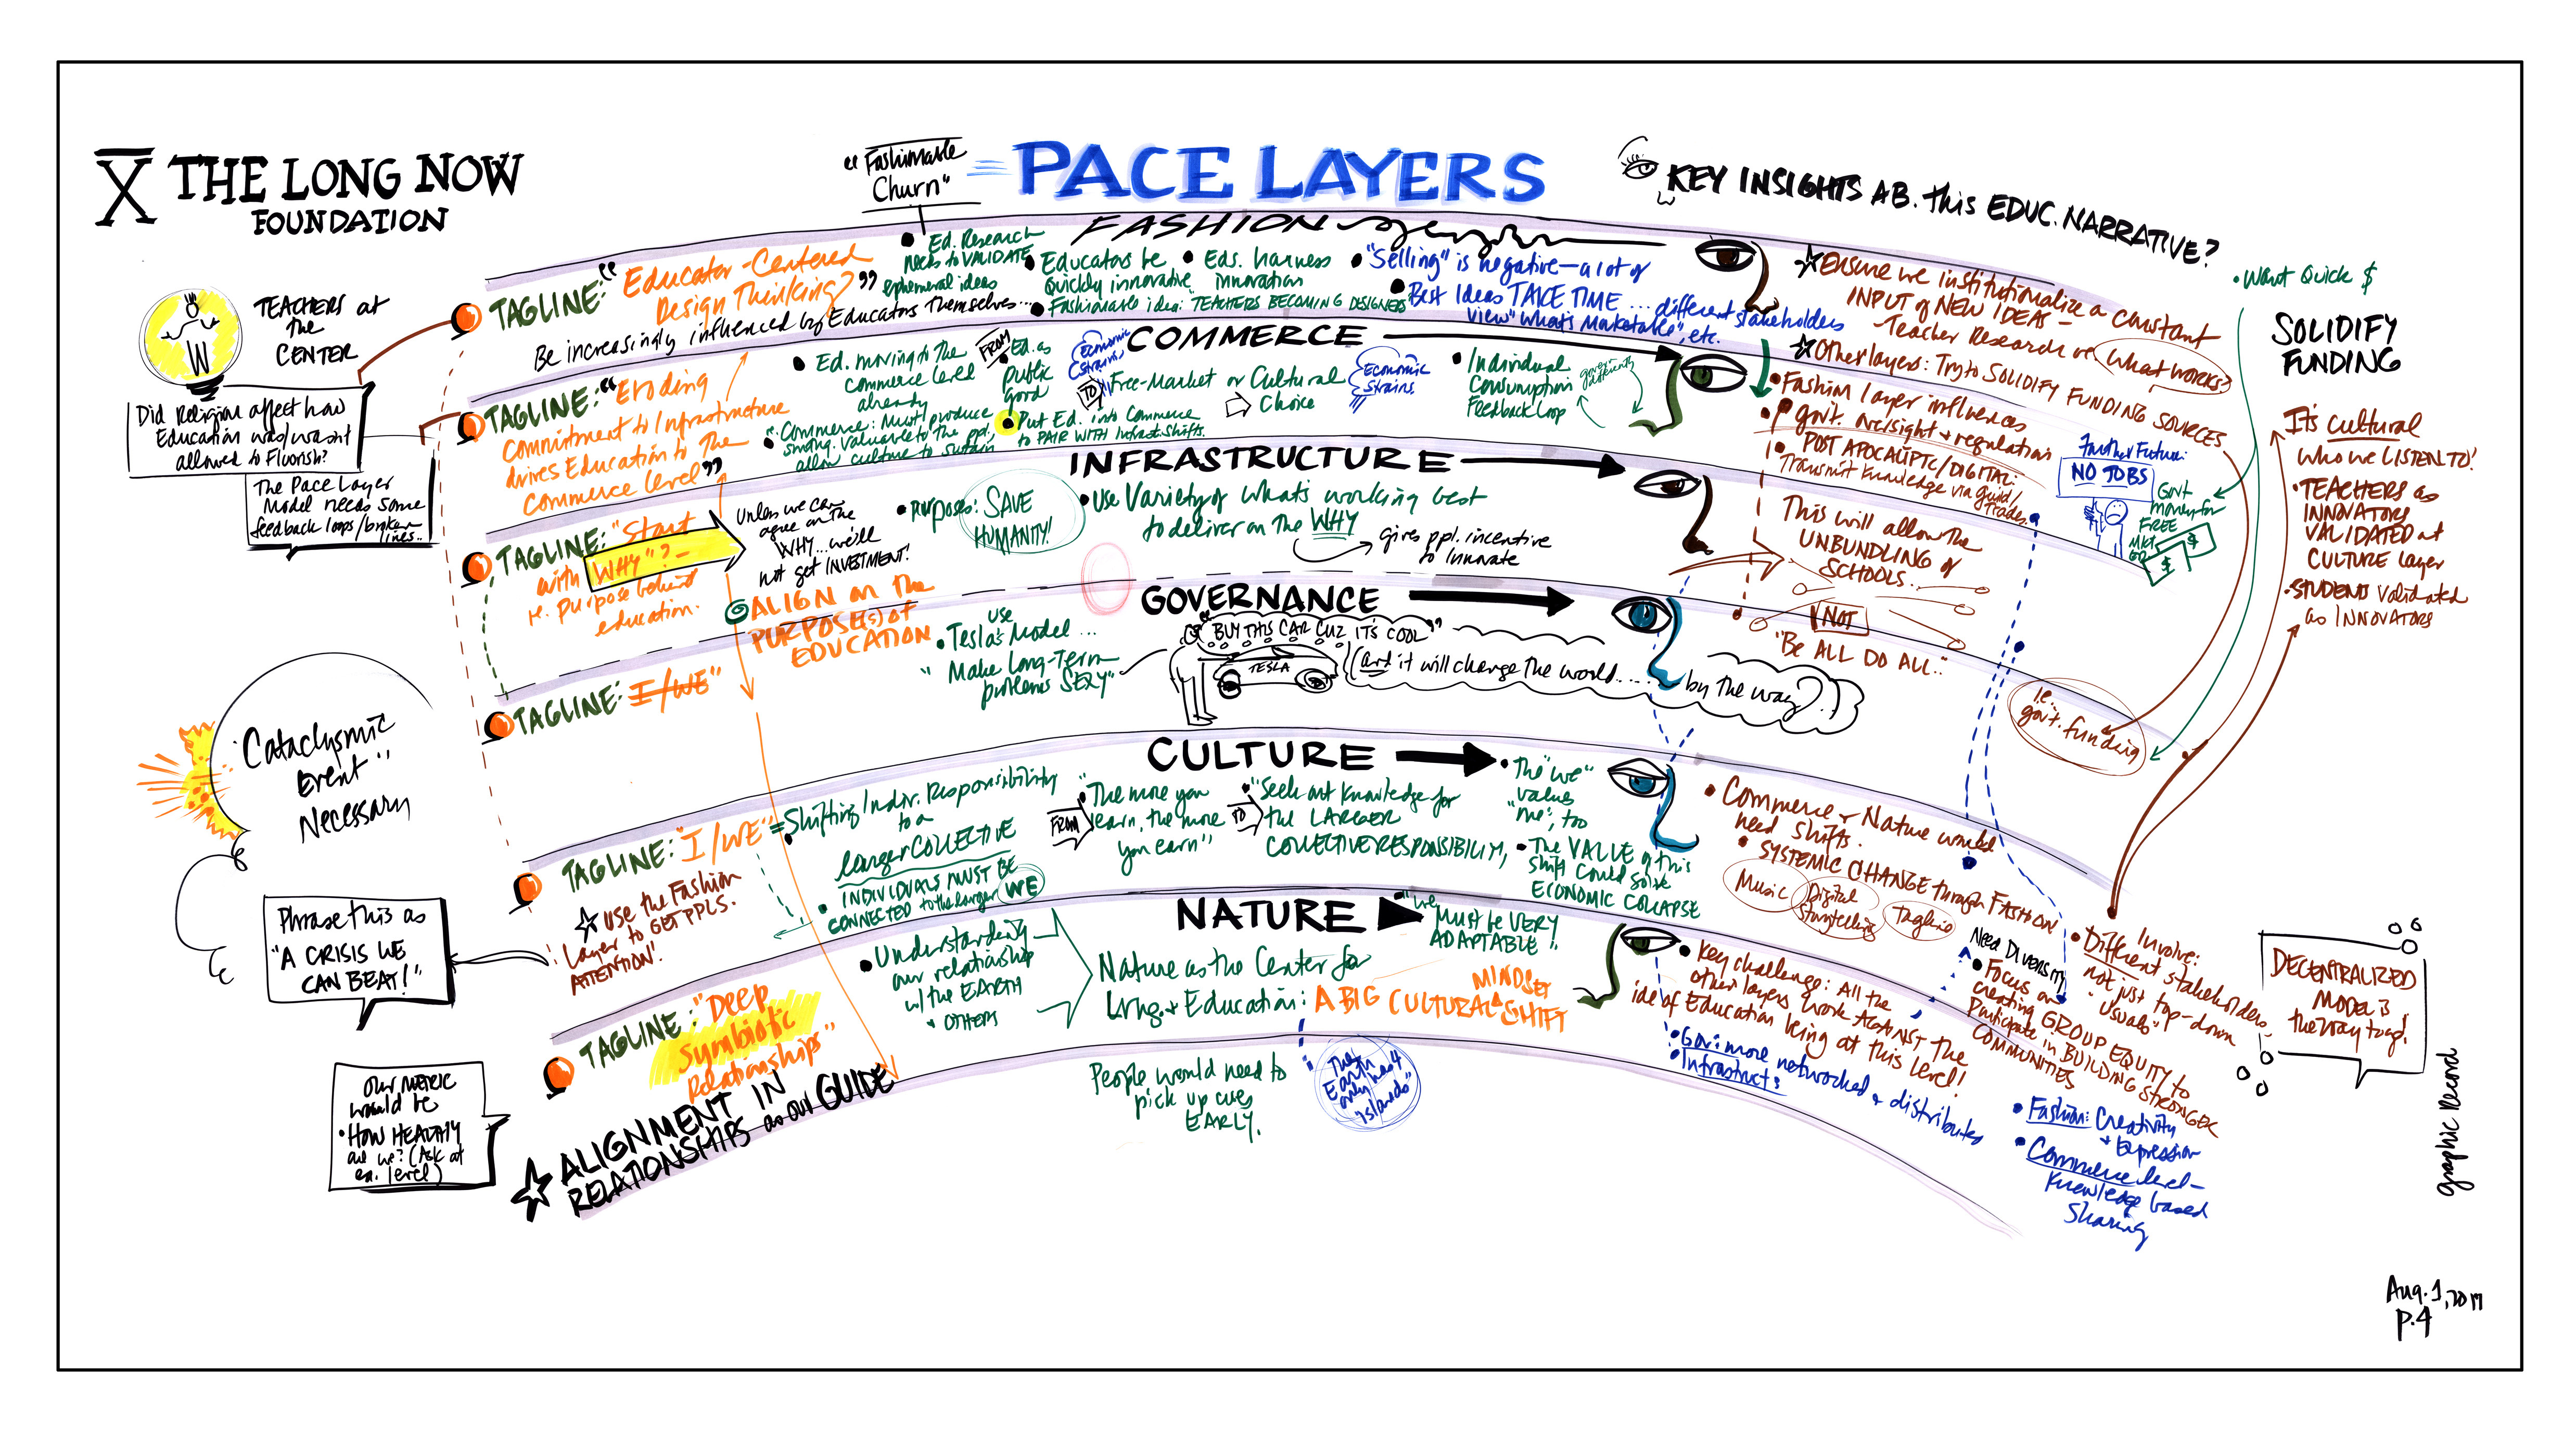 X THE LONG NOW
FOUNDATION
"Fashionable
Churn"
PACE LAYERS
KEY INSIGHTS AB. this EDUC. NARRATIVE?
FASHION
TAGLINE: "Educator-Centered
Design Thinking?"
Be increasingly influenced by Educators Themselves...
• Ed. Research
needs to VALIDATE
ephemeral ideas
• Educators be
Quickly innovative
• Eds. harness
innovation
• Fashionable idea: TEACHERS BECOMING DESIGNERS
• "Selling" is negative – a lot of
• Best Ideas TAKE TIME ... different stakeholders
view "what's Marketable", etc.
☆ Ensure we institutionalize a constant
INPUT of NEW IDEAS –
– Teacher Research re what works?
☆ Other layers: Try to SOLIDIFY FUNDING SOURCES
• Want Quick $
SOLIDIFY
FUNDING
TEACHERS at
the
CENTER
W
Did Religion affect how
Education was/wasn't
allowed to Flourish?
The Pace Layer
Model needs some
feedback loops/broken
lines..
COMMERCE
TAGLINE: "Eroding
Commitment to Infrastructure
drives Education to the
Commerce level"
• Ed. moving to the
commerce level
already
• "Commerce: Must produce
smthng. valuable to the ppl,
allow culture to sustain
FROM
• Ed. as
public
good
Economic
Strains
TO
Free-Market or Cultural
Choice
• Put Ed. into Commerce
to PAIR WITH Infrast. Shifts.
Economic
Strains
• Individual
Consumption
Feedback Loop
• Fashion layer influences
govt. oversight & regulation
• POST APOCALYPTIC/DIGITAL:
Transmit Knowledge via guild/
trades.
Further Future:
NO JOBS
Govt
money for
FREE
MKT
ED.
$
$
It's cultural
who we LISTEN TO!
• TEACHERS as
INNOVATORS
VALIDATED at
CULTURE layer
• STUDENTS validated
as INNOVATORS
INFRASTRUCTURE
TAGLINE: "Start
with WHY"? –
i.e. purpose behind
education.
Unless we can
agree on the
WHY... we'll
not get INVESTMENT!
ALIGN on the
PURPOSE(s) of
EDUCATION
• Purposes: SAVE
HUMANITY!
• Use Variety of what's working best
to deliver on the WHY
gives ppl. incentive
to innovate
This will allow the
UNBUNDLING of
SCHOOLS...
NOT
"Be ALL DO ALL.."
GOVERNANCE
TAGLINE: I/WE"
use
• Tesla's Model ...
"Make Long-Term
problems SEXY"
"BUY THIS CAR CUZ IT'S COOL"
TESLA
(and it will change the world......
by the way)..!
i.e.
govt. funding
"Cataclysmic
Event"
Necessary
CULTURE
TAGLINE: "I/WE"
☆ use the Fashion
Layer to GET PPLS.
ATTENTION!
= Shifting Indiv. Responsibility
to a
larger COLLECTIVE
• INDIVIDUALS MUST BE
CONNECTED to the larger WE
FROM
• "The more you
learn, the more
you earn"
TO
• "Seek out knowledge for
the LARGER
COLLECTIVE RESPONSIBILITY,
• The "we"
values
"me", too
• The VALUE of this
shift could solve
ECONOMIC COLLAPSE
• Commerce & Nature would
need shifts.
• SYSTEMIC CHANGE through FASHION
Music
Digital
Storytelling
Tagline
Phrase this as
"A CRISIS WE
CAN BEAT!"
NATURE
TAGLINE: "Deep
Symbiotic
Relationships"
☆ ALIGNMENT IN
RELATIONSHIPS as our GUIDE
• Understanding
our relationship
w/the EARTH
& OTHERS
Nature as the Center for
Lrng. & Education: A BIG CULTURAL MINDSET SHIFT
• "We
MUST be VERY
ADAPTABLE!"
People would need to
pick up cues
EARLY.
"The
Earth
only has 4
islands"
• Key challenge: All the
other layers work AGAINST the
idea of Education being at this level!
• Gov: more networked & distributed
• Infrastruct:
Need Diversity
• Focus on
creating GROUP EQUITY to
Participate in BUILDING STRONGER
COMMUNITIES
Involve:
• Different stakeholders,
not just top-down
"usuals"
• Fashion: Creativity
& Expression
• Commerce level –
Knowledge based
Sharing
DECENTRALIZED
MODEL is
the way to go!
Our METRIC
would be
• HOW HEALTHY
are we? (Ask at
ea. level)
graphic Record
Aug. 1, 2017
P.4